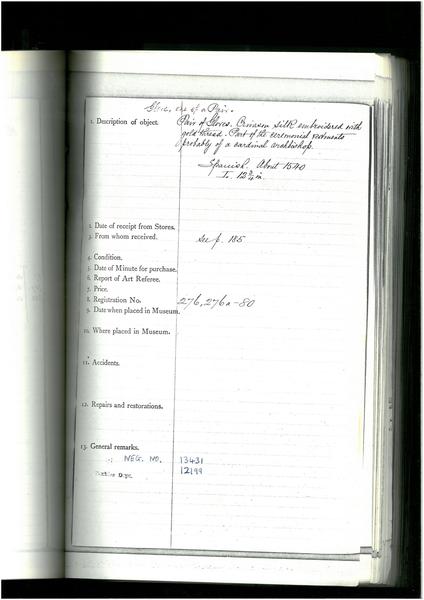 Glove, one of a Pair.
1. Description of object. Pair of Gloves. Crimson silk embroidered with
gold thread. Part of the ceremonial vestments
probably of a cardinal archbishop.
Spanish. About 1540
L. 12 3/4 in.
2. Date of receipt from Stores.
3. From whom received. see p. 185
4. Condition.
5. Date of Minute for purchase.
6. Report of Art Referee.
7. Price.
8. Registration No. 276, 276a-80
9. Date when placed in Museum.
10. Where placed in Museum.
11. Accidents.
12. Repairs and restorations.
13. General remarks.
NEG. NO. 13431
Textiles Dept. 12199